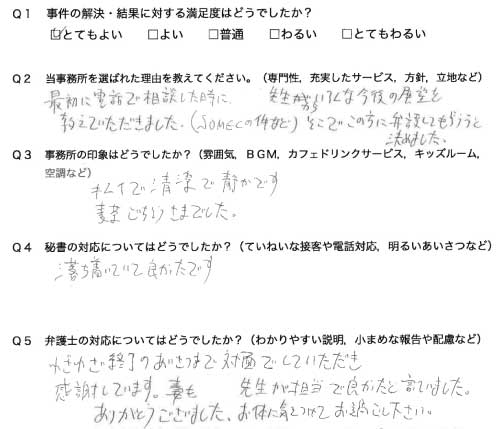 Q1 事件の解決・結果に対する満足度はどうでしたか?
☑とてもよい □よい □普通 □わるい □とてもわるい
Q2 当事務所を選ばれた理由を教えてください。(専門性, 充実したサービス, 方針, 立地など)
最初に電話で相談した時に、 先生からいろんな今後の展望を
教えていただきました。(SOMECの件など) そこでこの方に弁護してもらうと
決めました。
Q3 事務所の印象はどうでしたか?(雰囲気, BGM, カフェドリンクサービス, キッズルーム,
空調など)
キレイで清潔で静かです
お茶ごちそうさまでした。
Q4 秘書の対応についてはどうでしたか?(ていねいな接客や電話対応, 明るいあいさつなど)
落ち着いていて良かったです
Q5 弁護士の対応についてはどうでしたか?(わかりやすい説明, 小まめな報告や配慮など)
わざわざ終了のあいさつまで対面でしていただき
感謝しています。妻も 先生が担当で良かったと言っていました。
ありがとうございました、お体に気をつけてお過ごし下さい。